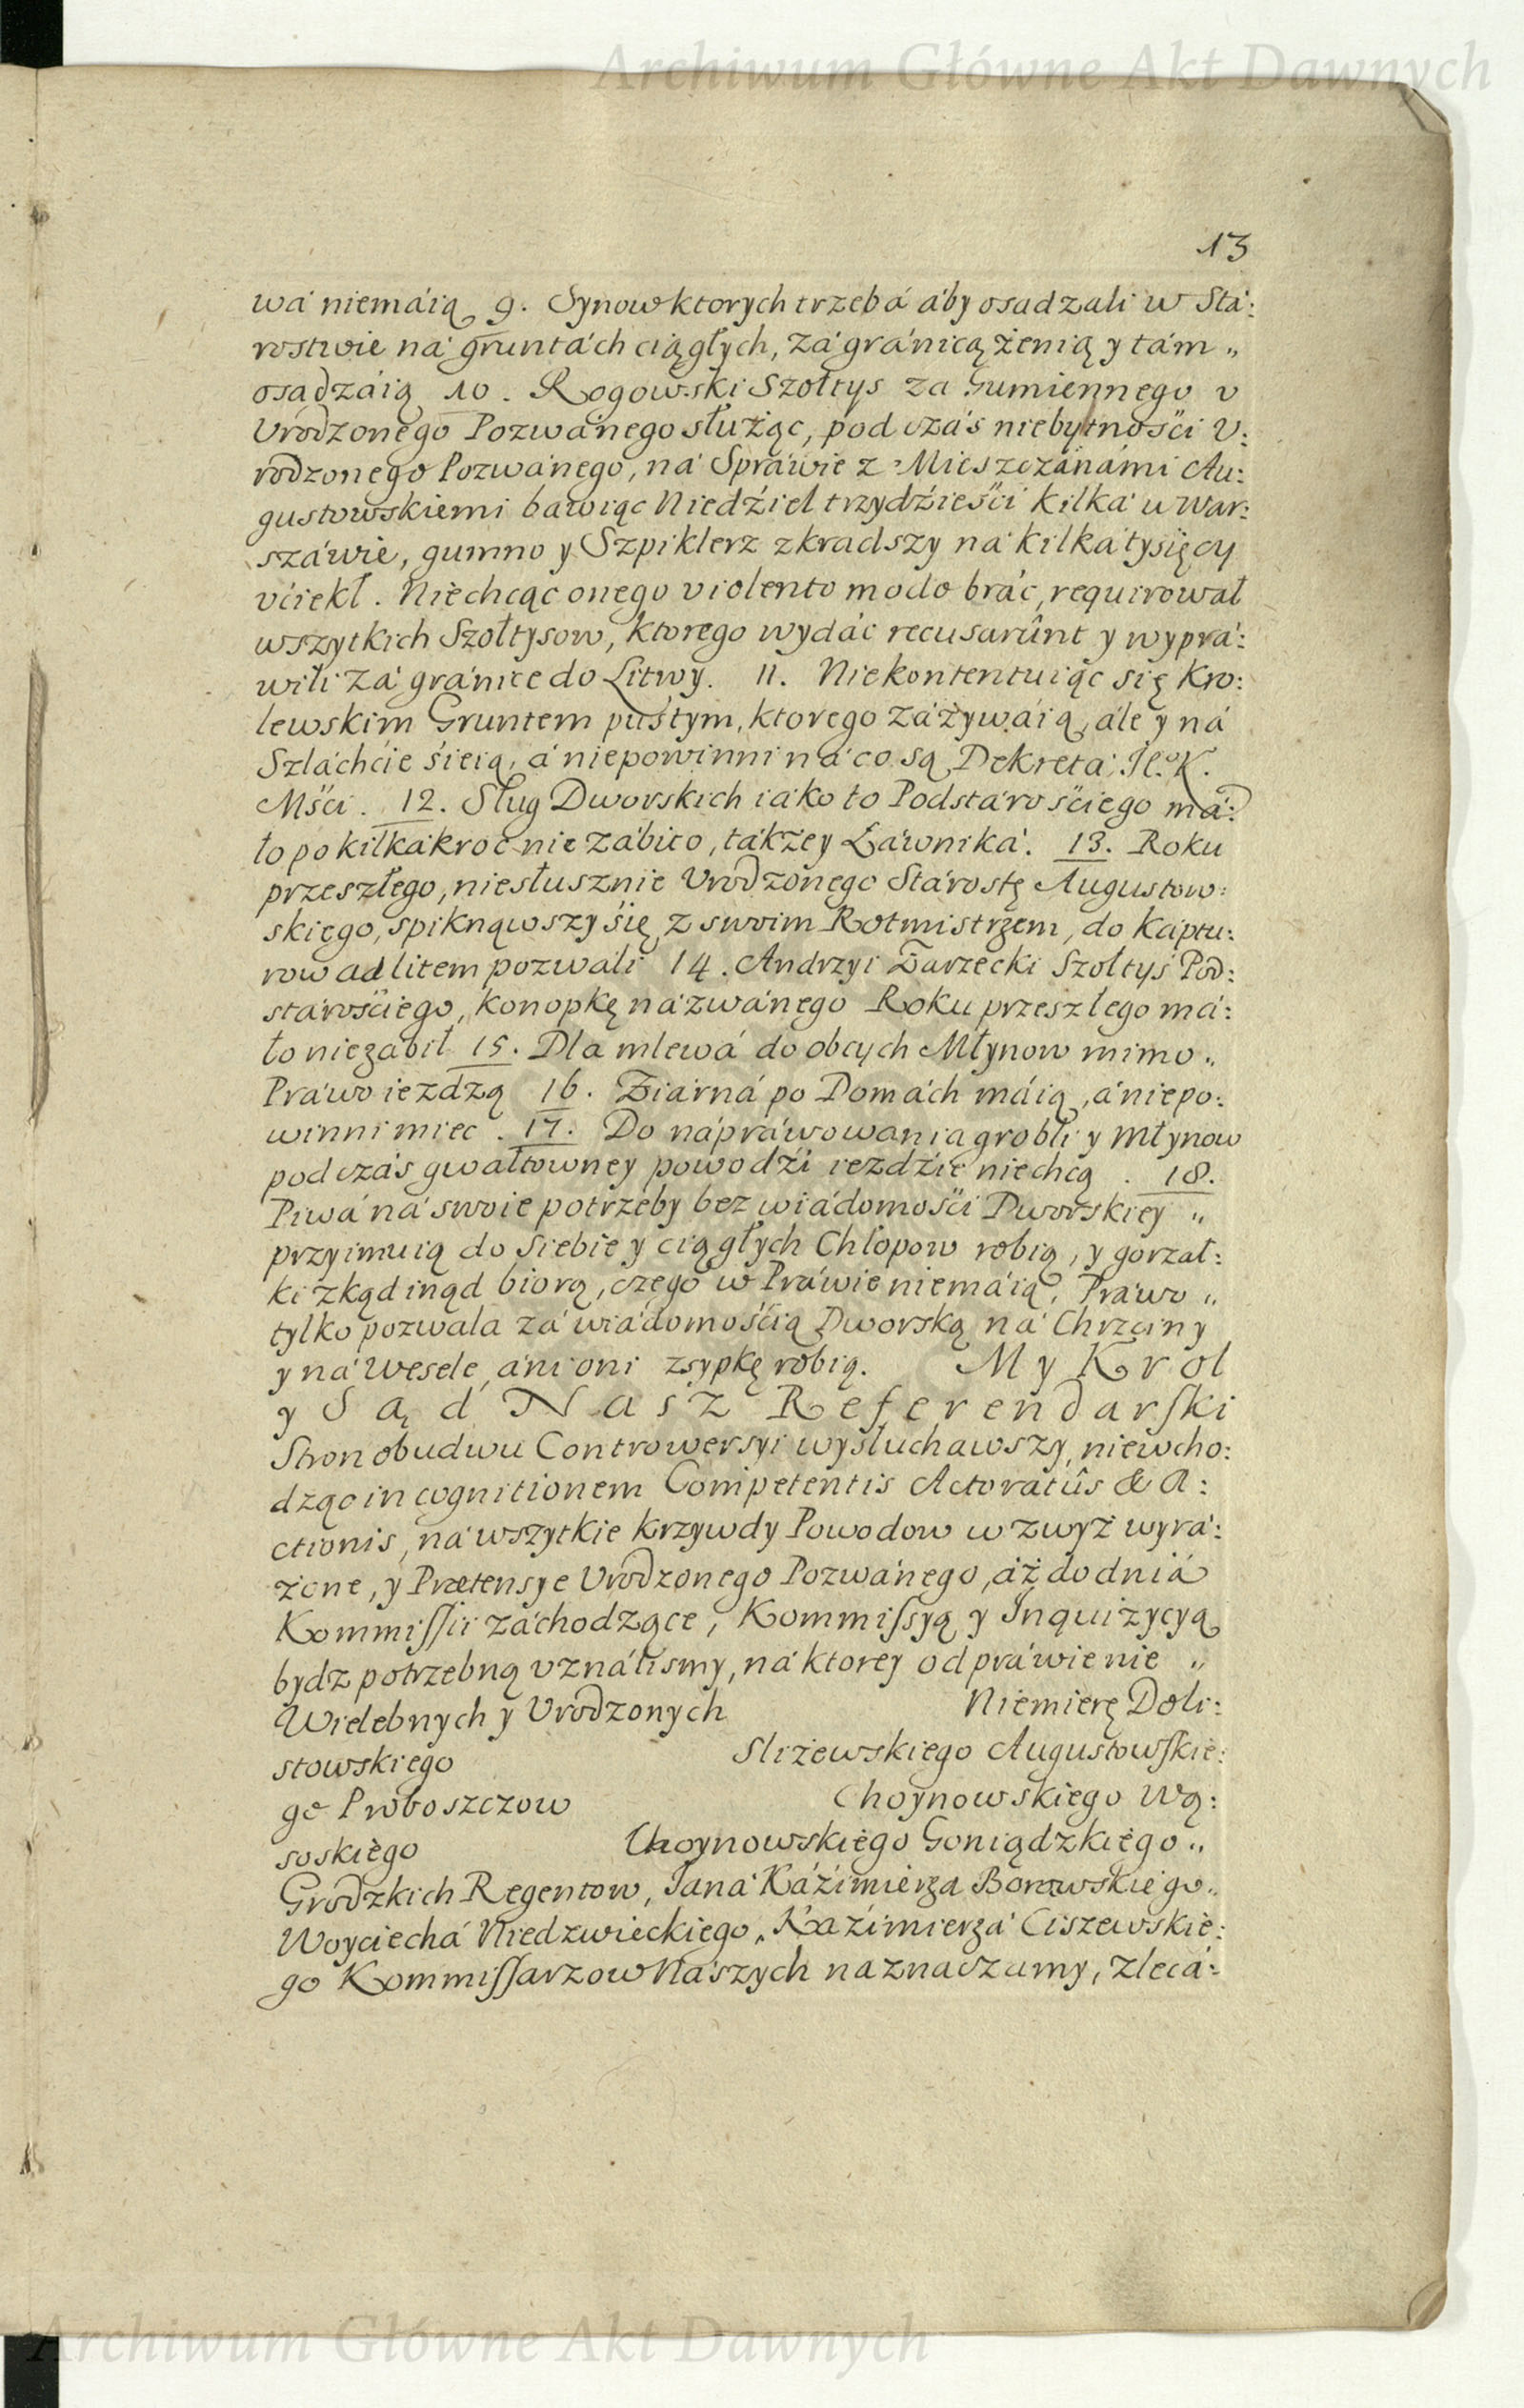 Archiwum Główne Akt Dawnych
13
wá niemáią 9. Synow ktorych trzebá áby osadzali w Stá:
rostwie ná gruntách ciągłych, zá gránicą żenią y tám „
osadzáią 10. Rogowski Szołtys za Gumiennego v
Vrodzonego Pozwánego służąc, podczás niebytności V:
rodzonego Pozwánego, ná Spráwie z Mieszczánámi Au:
gustowskiemi bawiąc Niedźiel trzydźieści kilká u War:
száwie, gumno y Szpiklerz zkradszy ná kilká tysięcy
vciekł. Niechcąc onego violento modo bráć, requirował
wszytkich Szołtysow, ktorego wydáć recusarûnt y wyprá:
wili zá gránice do Litwy. 11. Niekontentuiąc się Kro:
lewskim Gruntem pustym, ktorego záżywáią, ále y ná
Szláchćie śieią, á niepowinni ná co są Dekretá J.K.
Mści. 12. Sług Dworskich iako to Podstárościego má:
ło po kilkákroć nie zábito, tákże y Łáwniká. 13. Roku
przeszłego, niesłusznie Vrodzonego Stárostę Augustow:
skiego, spiknąwszy się z swoim Rotmistrzem, do Kaptu:
row ad litem pozwáli 14. Andrzyi Zarzecki Szołtys Pod:
stárościego, Konopkę názwánego Roku przeszłego má:
ło niezábił 15. Dla mlewá do obcych Młynow mimo „
Práwo ieżdżą 16. Żiarná po Domách máią, á niepo:
winni miec. 17. Do nápráwowania grobli y Młynow
podczás gwałtowney powodźi ieżdźić niechcą. 18.
Piwá ná swoie potrzeby bez wiádomości Dworskiey „
przyimuią do siebie y ciągłych Chłopow robią, y gorzał:
ki zkąd inąd biorą, czego w Práwie niemáią, Práwo „
tylko pozwala zá wiádomością Dworską ná Chrzciny
y ná Wesele, áni oni zsypkę robią. My Krol
y Sąd Nasz Referendarski
Stron obudwu Controwersyi wysłuchawszy, niewcho:
dząc in cognitionem Competentis Actoratûs & A:
ctionis, ná wszytkie krzywdy Powodow wzwyż wyrá:
żone, y Prætensye Vrodzonego Pozwánego, áż do dniá
Kommissii záchodzące, Kommissyą y Inquizycyą
bydz potrzebną vználismy, ná ktorey odpráwienie „
Wielebnych y Vrodzonych Niemierę Doli:
stowskiego Sliżewskiego Augustowskie:
go Proboszczow Choynowskiego Wą:
soskiego Choynowskiego Goniądzkiego „
Grodzkich Regentow, Janá Káźimierza Borawskiego „
Woyciechá Niedzwieckiego, Kaźimierzá Ciszewskie:
go Kommissarzow Nászych naznaczamy, zlecá:
Archiwum Główne Akt Dawnych